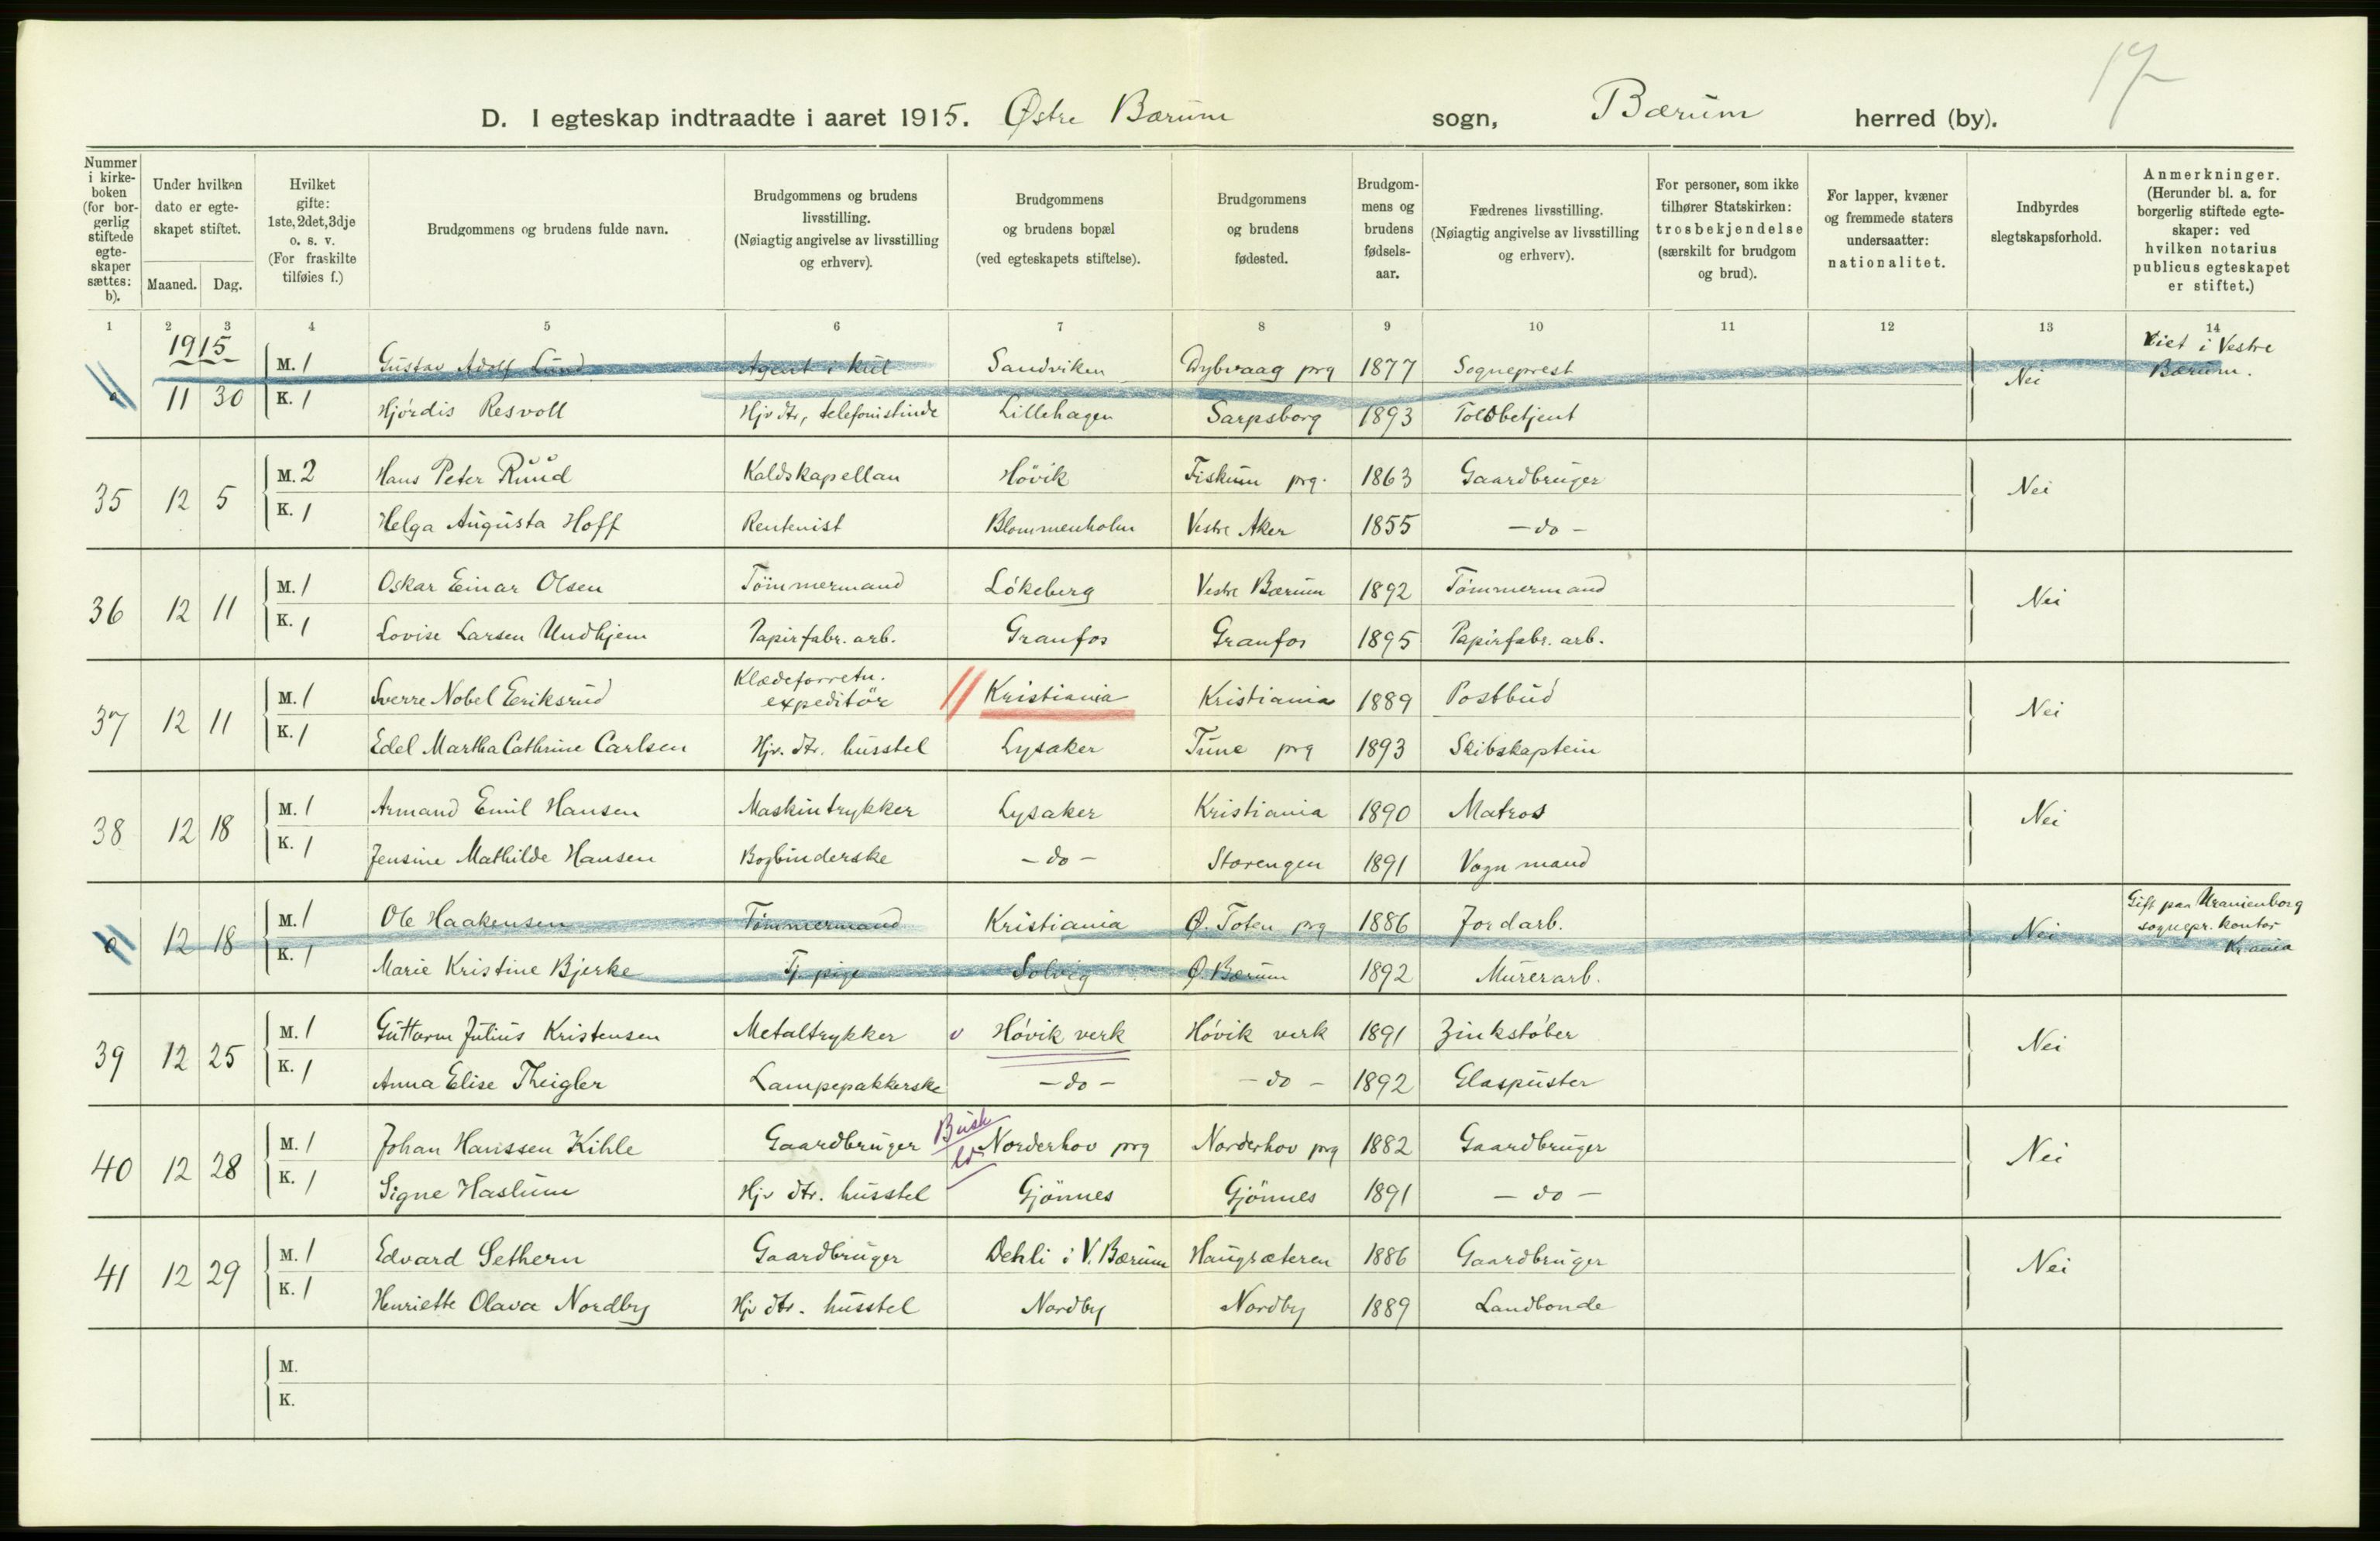 17
D. I egteskap indtraadte i aaret 1915. Østre Bærum sogn, Bærum herred (by).
Nummer i kirke-boken (for bor-gerlig stiftede egte-skaper sættes: b).
Under hvilken dato er egte-skapet stiftet.
Maaned. Dag.
Hvilket gifte: 1ste, 2det, 3dje o. s. v. (For fraskilte tilføies f.)
Brudgommens og brudens fulde navn.
Brudgommens og brudens livsstilling. (Nøiagtig angivelse av livsstilling og erhverv).
Brudgommens og brudens bopæl (ved egteskapets stiftelse).
Brudgommens og brudens fødested.
Brudgom-mens og brudens fødsels-aar.
Fædrenes livsstilling. (Nøiagtig angivelse av livsstilling og erhverv).
For personer, som ikke tilhører Statskirken: trosbekjendelse (særskilt for brudgom og brud).
For lapper, kvæner og fremmede staters undersaatter: nationalitet.
Indbyrdes slegtskapsforhold.
Anmerkninger. (Herunder bl. a. for borgerlig stiftede egte-skaper: ved hvilken notarius publicus egteskapet er stiftet.)
1 2 3 4 5 6 7 8 9 10 11 12 13 14
1915
M. 1 Gustav Adolf Lund Agent i kul Sandviken Dybvaag prg 1877 Sogneprest Nei Viet i Vestre Bærum.
11 30 K. 1 Hjördis Resvoll Hjv dtr, telefonistinde Lillehagen Sarpsborg 1893 Toldbetjent
35 12 5 M. 2 Hans Peter Ruud Kaldskapellan Hövik Fiskum prg. 1863 Gaardbruger Nei
K. 1 Helga Augusta Hoff Rentenist Blommenholm Vestre Aker 1855 - do -
36 12 11 M. 1 Oskar Einar Olsen Tömmermand Lökeberg Vestre Bærum 1892 Tömmermand Nei
K. 1 Lovise Larsen Undhjem Papirfabr. arb. Granfos Granfos 1895 Papirfabr. arb.
37 12 11 M. 1 Sverre Nobel Eeriksrud Klædeforretn. expeditör Kristiania Kristiania 1889 Postbud Nei
K. 1 Edel Martha Cathrine Carlsen Hjv. dtr. husstel Lysaker Tune prg 1893 Skibskaptein
38 12 18 M. 1 Armand Emil Hansen Maskintrykker Lysaker Kristiania 1890 Matros Nei
K. 1 Jensine Mathilde Hansen Bogbinderske - do - Storengen 1891 Vognmand
12 18 M. 1 Ole Haakensen Tömmermand Kristiania Ø. Toten prg 1886 Jordarb. Nei Gift paa Uranienborg sognepr. kontor Krania
K. 1 Marie Kristine Bjerke Tj. pige Solvig Ø. Bærum 1892 Murerarb.
39 12 25 M. 1 Guttorm Julius Kristensen Metaltrykker v Hövik verk Hövik verk 1891 Zinkstöber Nei
K. 1 Anna Elise Theigler Lampepakkerske - do - - do - 1892 Glaspuster
40 12 28 M. 1 Johan Hanssen Kihle Gaardbruger Busk Norderhov prg Norderhov prg 1882 Gaardbruger Nei
K. 1 Signe Haslum Hjv dtr. husstel Gjönnes Gjönnes 1891 - do -
41 12 29 M. 1 Edvard Sethern Gaardbruger Dehli i V. Bærum Haugsæteren 1886 Gaardbruger Nei
K. 1 Henriette Olava Nordby Hjv dtr. husstel Nordby Nordby 1889 Landbonde
M.
K.